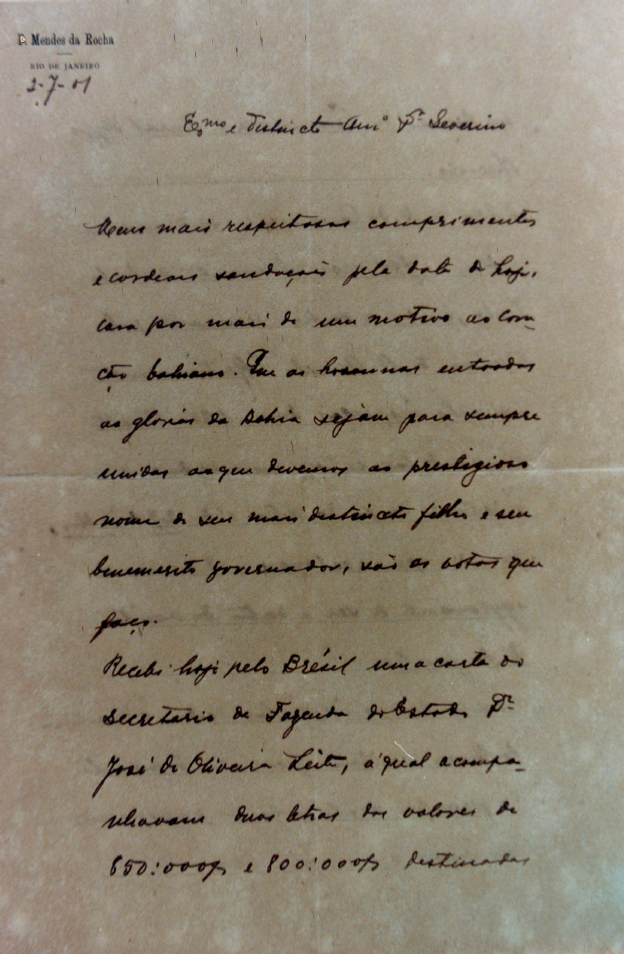 P. Mendes da Rocha
RIO DE JANEIRO
2-7-01
Exmo e distincto Amo Dr Severino
Meus mais respeitosos comprimentos
e cordeaes saudações pela data de hoje,
cara por mais de um motivo ao cora-
ção bahiano. Que os hosannas entoados
as glorias da Bahia sejam para sempre
unidos ao que devemos ao prestigioso
nome de seu mais distincto filho e seu
benemerito governador, são os votos que
faço.
Recebi hoje pelo Brésil uma carta do
Secretario da Fazenda do Estado Dr
José de Oliveira Leite, á qual acompa-
nhavam duas letras dos valores de
850:000$ e 800:000$ destinadas